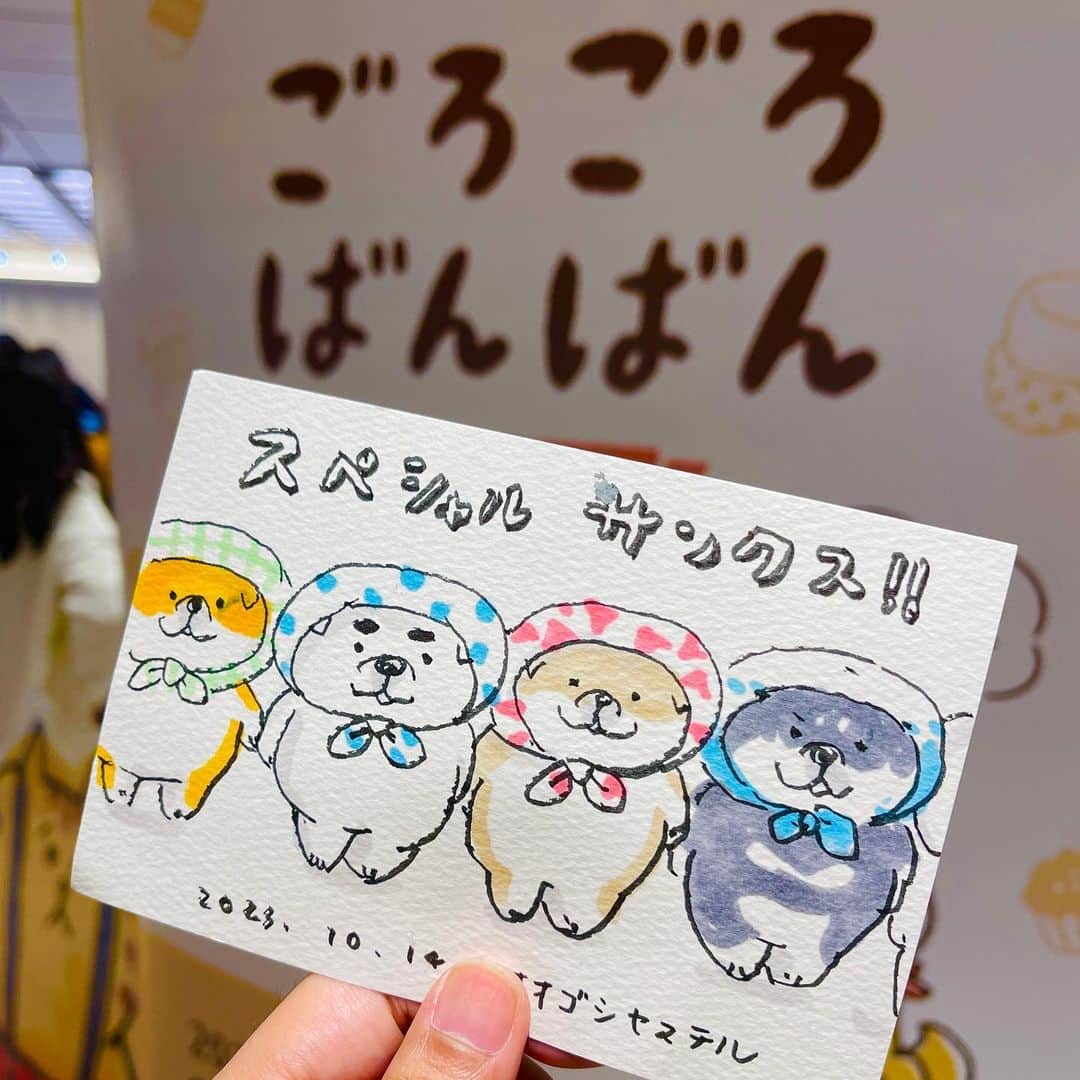 ごろごろ
ばんばん
スペシャル サンクス!!
2023. 10. 14
オゴシヤステル